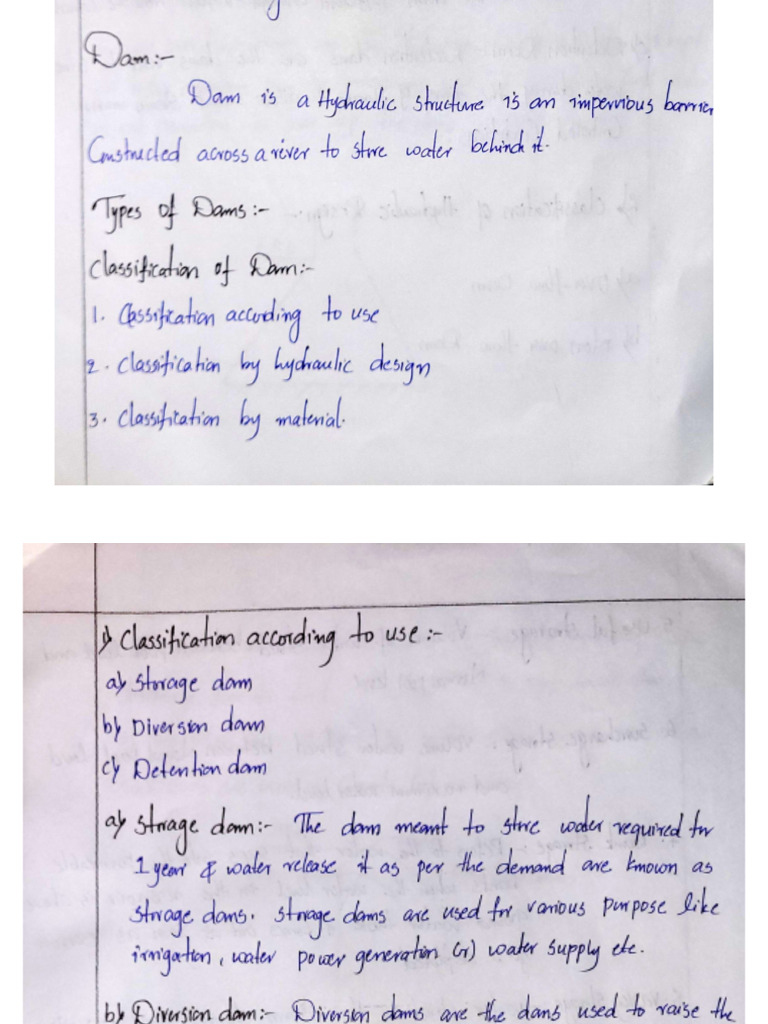 Dam:-
Dam is a Hydraulic structure is an impervious barrier
Constructed across a river to store water behind it.
Types of Dams:-
Classification of Dam:-
1. Classification according to use
2. Classification by hydraulic design
3. Classification by material.
1) Classification according to use:-
a) Storage dam
b) Diversion dam
c) Detention dam
a) Storage dam:- The dam meant to store water required for
1 year & water release it as per the demand are known as
Storage dams. Storage dams are used for various purpose like
irrigation, water power generation (or) water supply etc.
b) Diversion dam:- Diversion dams are the dans used to raise the